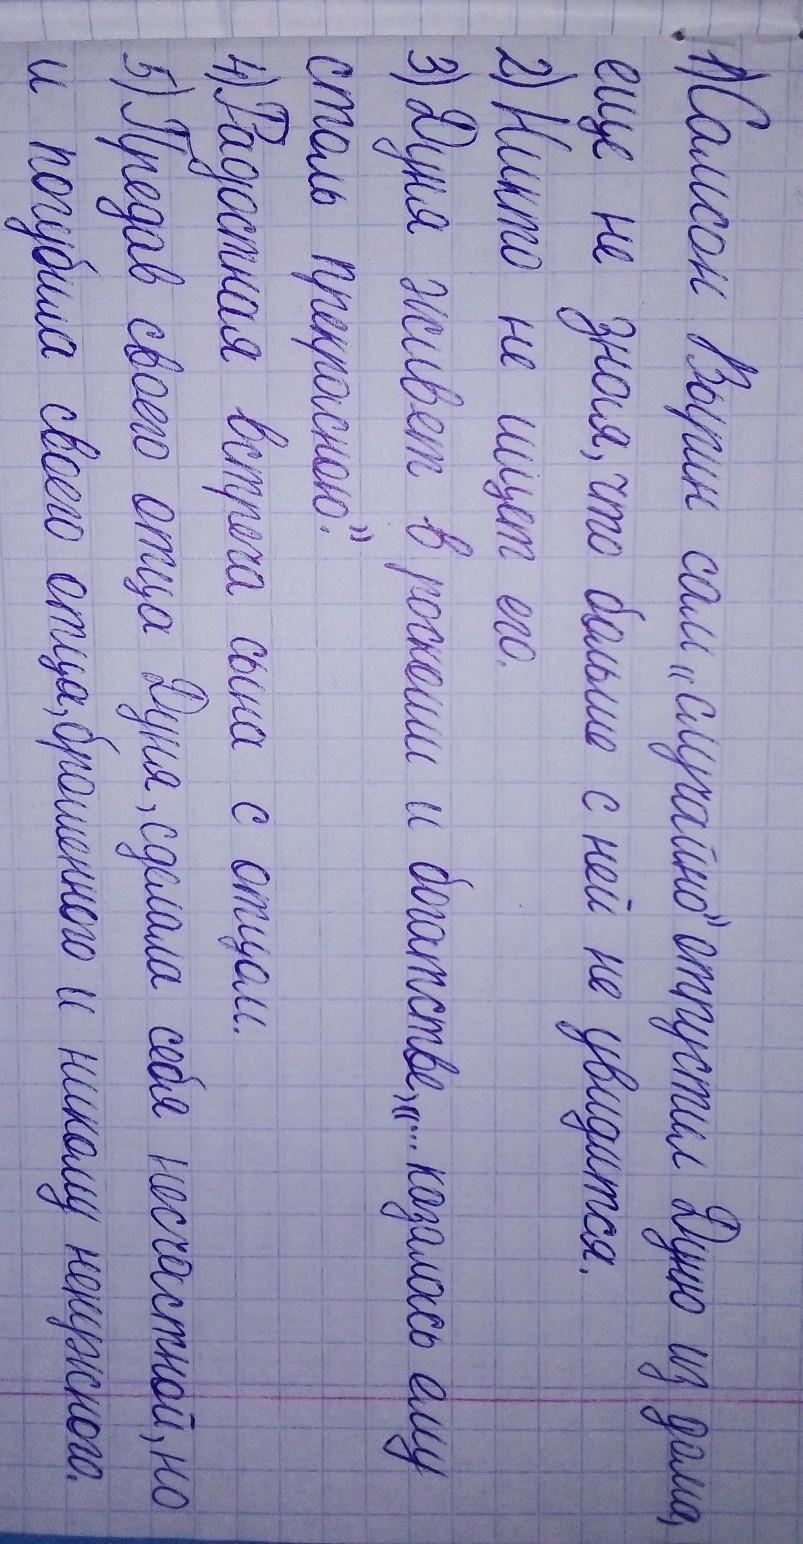 1) Самсон Вырин сам „случайно" отпустил Дуню из дома,
еще не зная, что больше с ней не увидится.
2) Никто не ищет его.
3) Дуня живет в роскоши и богатстве, „... казалась ему
столь прекрасною."
4) Радостная встреча сына с отцом.
5) Предав своего отца Дуня, сделала себя несчастной, но
и погубила своего отца, брошенного и никому ненужного.